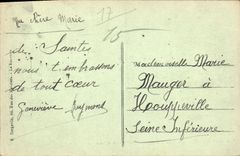 Ma chère Marie
17
15
de Saintes
nous t'embrassons
de tout cœur
Geneviève Raymond
Mademoiselle Marie
Mauger à
Hoouppeville
Seine Inférieure